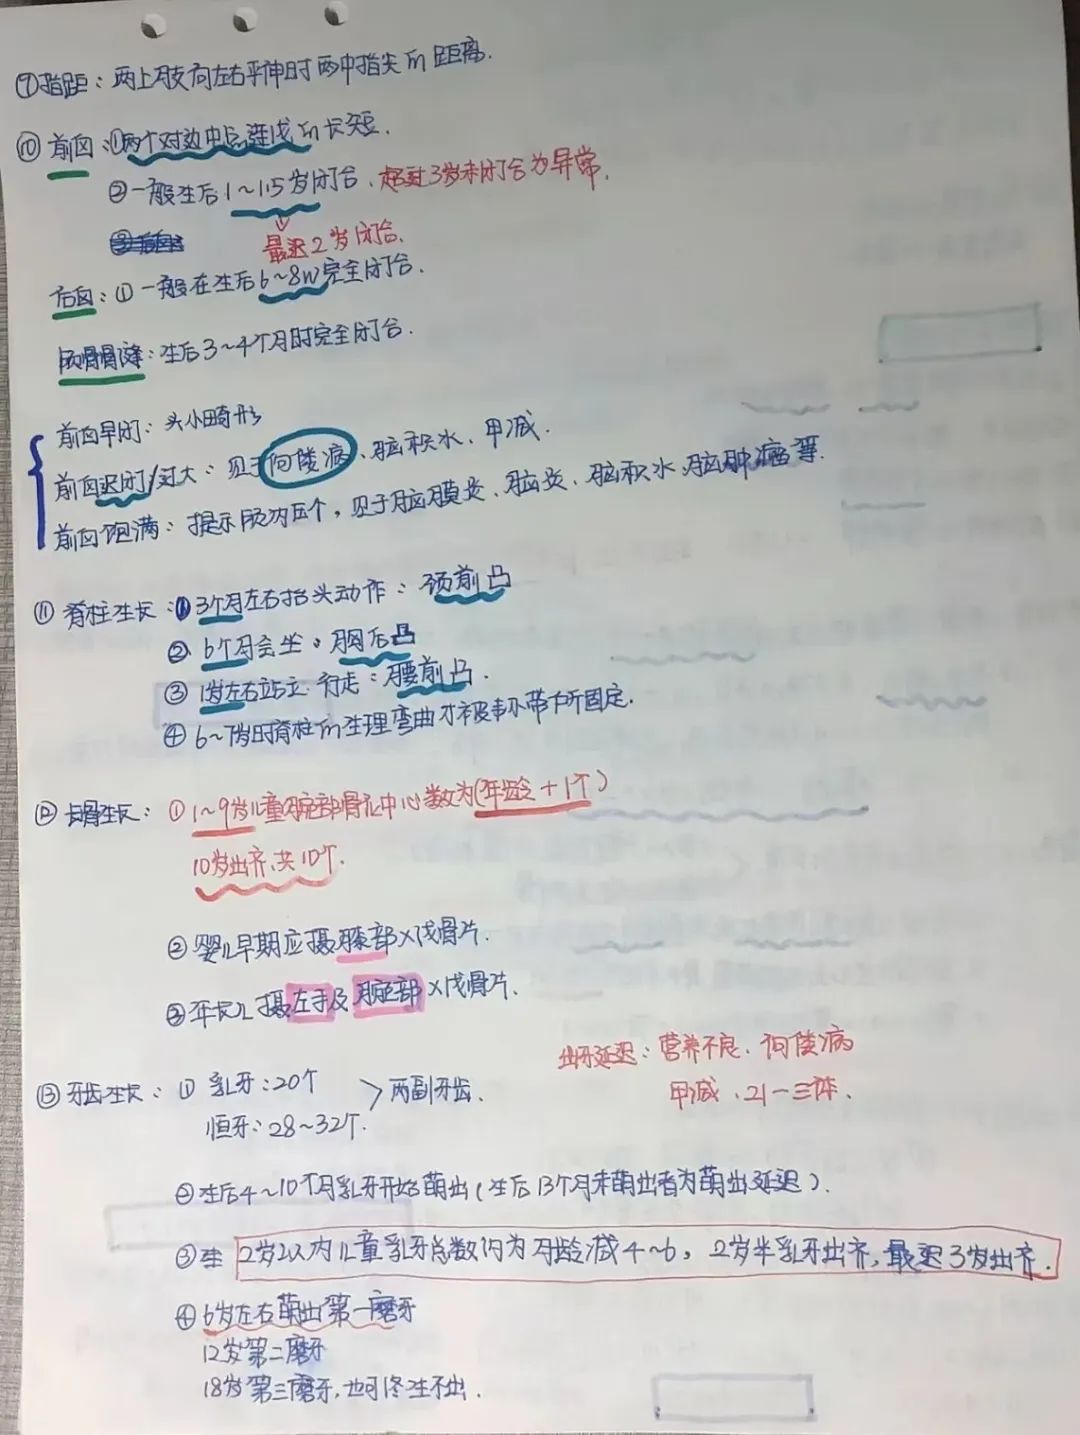 ⑦指距：两上肢向左右平伸时两中指尖的距离.
⑩ 前囟：①两个对边中点连线的长短.
②一般生后1～1.5岁闭合.超过3岁未闭合为异常.
最迟2岁闭合.
后囟：① 一般在生后6~8W完全闭合.
颅骨骨缝：生后3~4个月时完全闭合.
前囟早闭：头小畸形
前囟迟闭/过大：见于佝偻病、脑积水、甲减.
前囟饱满：提示颅内压个，见于脑膜炎、脑炎、脑积水、脑肿瘤等.
⑪ 脊柱生长：① 3个月左右抬头动作：颈前凸
② 6个月会坐：胸后凸
③ 1岁左右站立.行走：腰前凸.
④ 6~7岁时脊柱的生理弯曲才被韧带所固定.
⑫ 长骨生长：① 1~9岁儿童腕部骨化中心数为(年龄+1个)
10岁出齐,共10个.
② 婴儿早期应摄膝部X线骨片.
③年长儿摄左手及腕部X线骨片.
出牙延迟：营养不良.佝偻病
甲减.21-三体.
⑬ 牙齿生长：① 乳牙：20个 > 两副牙齿.
恒牙：28~32个.
②生后4~10个月乳牙开始萌出(生后13个月未萌出者为萌出延迟).
③生 2岁以内儿童乳牙总数约为月龄减4~6，2岁半乳牙出齐,最迟3岁出齐.
④ 6岁左右萌出第一磨牙
12岁第二磨牙
18岁第三磨牙,也可终生不出.